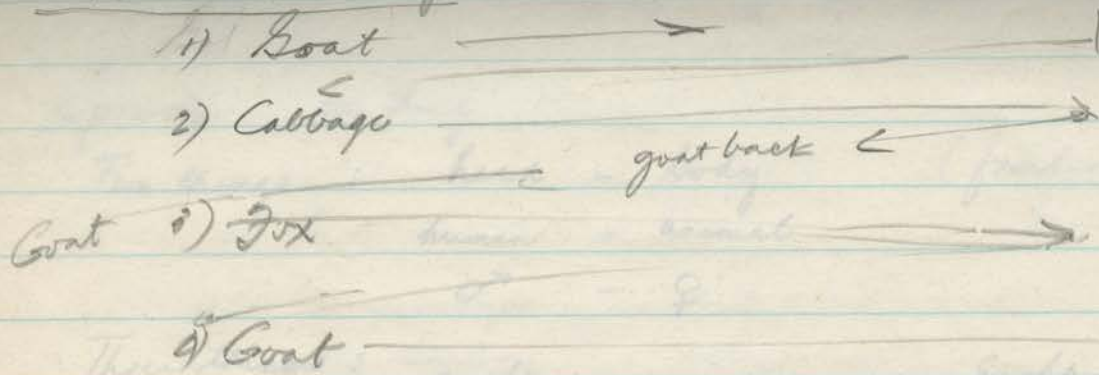 1) Goat
2) Cabbage
goat back
Goat 3) Fox
4) Goat